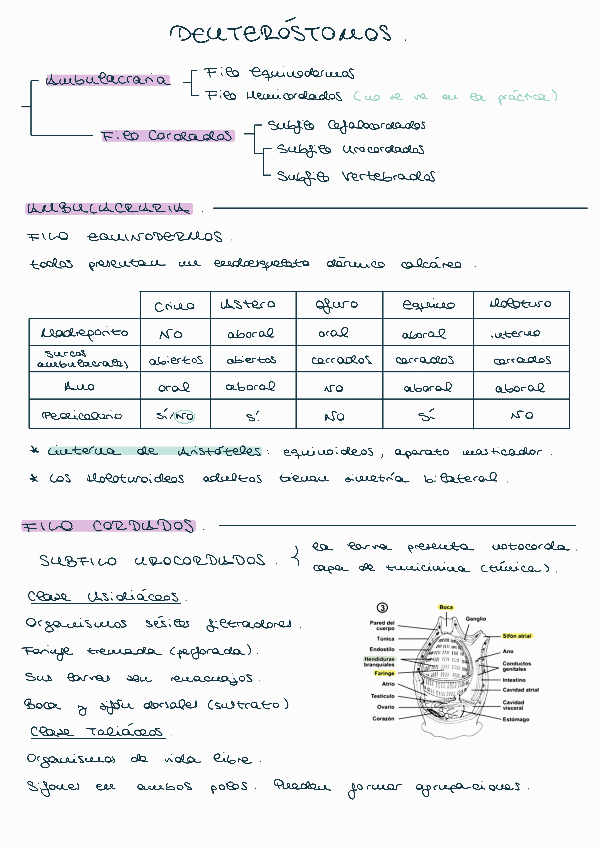 DEUTERÓSTOMOS.
Ambulacraria
Filo Equinodermos
Filo Hemicordados (no se ve en la práctica)
Filo Cordados
Subfilo Cefalocordados
Subfilo Urocordados
Subfilo Vertebrados
AMBULACRARIA.
FILO EQUINODERMOS.
todos presentan un endoesqueleto dérmico calcáreo.
Crino Astero Ofiuro Equino Holoturo
Madreporito NO aboral oral aboral interno
Surcos ambulacrales abiertos abiertos cerrados cerrados cerrados
Ano oral aboral NO aboral aboral
Pedicelario SÍ/NO SÍ NO SÍ NO
* Linterna de Aristóteles: equinoideos, aparato masticador.
* Los Holoturoideos adultos tienen simetría bilateral.
FILO CORDADOS.
SUBFILO UROCORDADOS.
la larva presenta notocorda.
capa de tunicinina (túnica).
Clase Asidiáceos.
Organismos sésiles filtradores.
Faringe tremada (perforada).
Sus larvas son renacuajos.
Boca y sifón dorsales (sustrato)
Clase Taliáceos.
Organismos de vida libre.
Sifones en ambos polos. Pueden formar agrupaciones.
3
Boca
Ganglio
Pared del cuerpo
Túnica
Endostilo
Hendiduras branquiales
Faringe
Atrio
Testículo
Ovario
Corazón
Sifón atrial
Ano
Conductos genitales
Intestino
Cavidad atrial
Cavidad visceral
Estómago